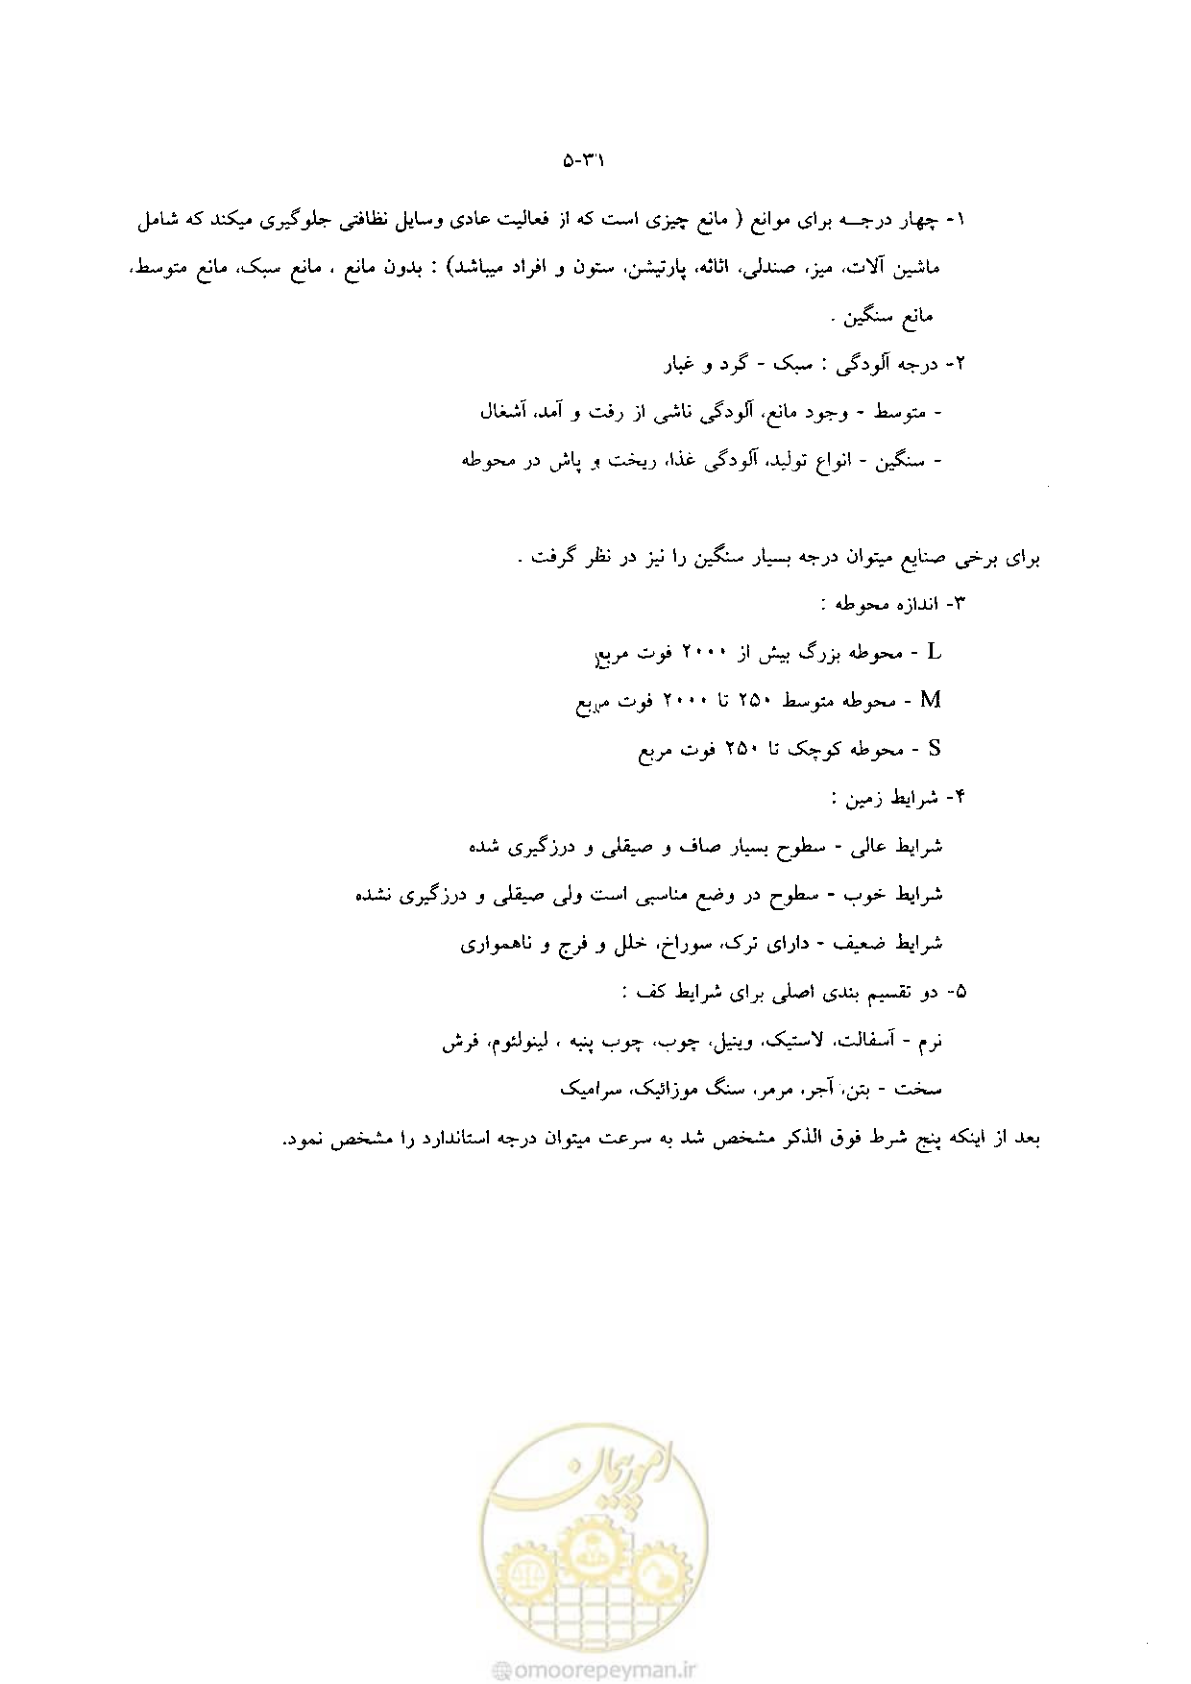 ۵-۳۱
۱- چهار درجـه برای موانع ( مانع چیزی است که از فعالیت عادی وسایل نظافتی جلوگیری میکند که شامل
ماشین آلات، میز، صندلی، اثاثه، پارتیشن، ستون و افراد میباشد) : بدون مانع ، مانع سبک، مانع متوسط،
مانع سنگین .
۲- درجه آلودگی : سبک - گرد و غبار
- متوسط - وجود مانع، آلودگی ناشی از رفت و آمد، آشغال
- سنگین - انواع تولید، آلودگی غذا، ریخت و پاش در محوطه
برای برخی صنایع میتوان درجه بسیار سنگین را نیز در نظر گرفت .
۳- اندازه محوطه :
L - محوطه بزرگ بیش از ۲۰۰۰ فوت مربع
M - محوطه متوسط ۲۵۰ تا ۲۰۰۰ فوت مربع
S - محوطه کوچک تا ۲۵۰ فوت مربع
۴- شرایط زمین :
شرایط عالی - سطوح بسیار صاف و صیقلی و درزگیری شده
شرایط خوب - سطوح در وضع مناسبی است ولی صیقلی و درزگیری نشده
شرایط ضعیف - دارای ترک، سوراخ، خلل و فرج و ناهمواری
۵- دو تقسیم بندی اصلی برای شرایط کف :
نرم - آسفالت، لاستیک، وینیل، چوب، چوب پنبه ، لینولئوم، فرش
سخت - بتن، آجر، مرمر، سنگ موزائیک، سرامیک
بعد از اینکه پنج شرط فوق الذکر مشخص شد به سرعت میتوان درجه استاندارد را مشخص نمود.
امور پیمان
@omoorepeyman.ir